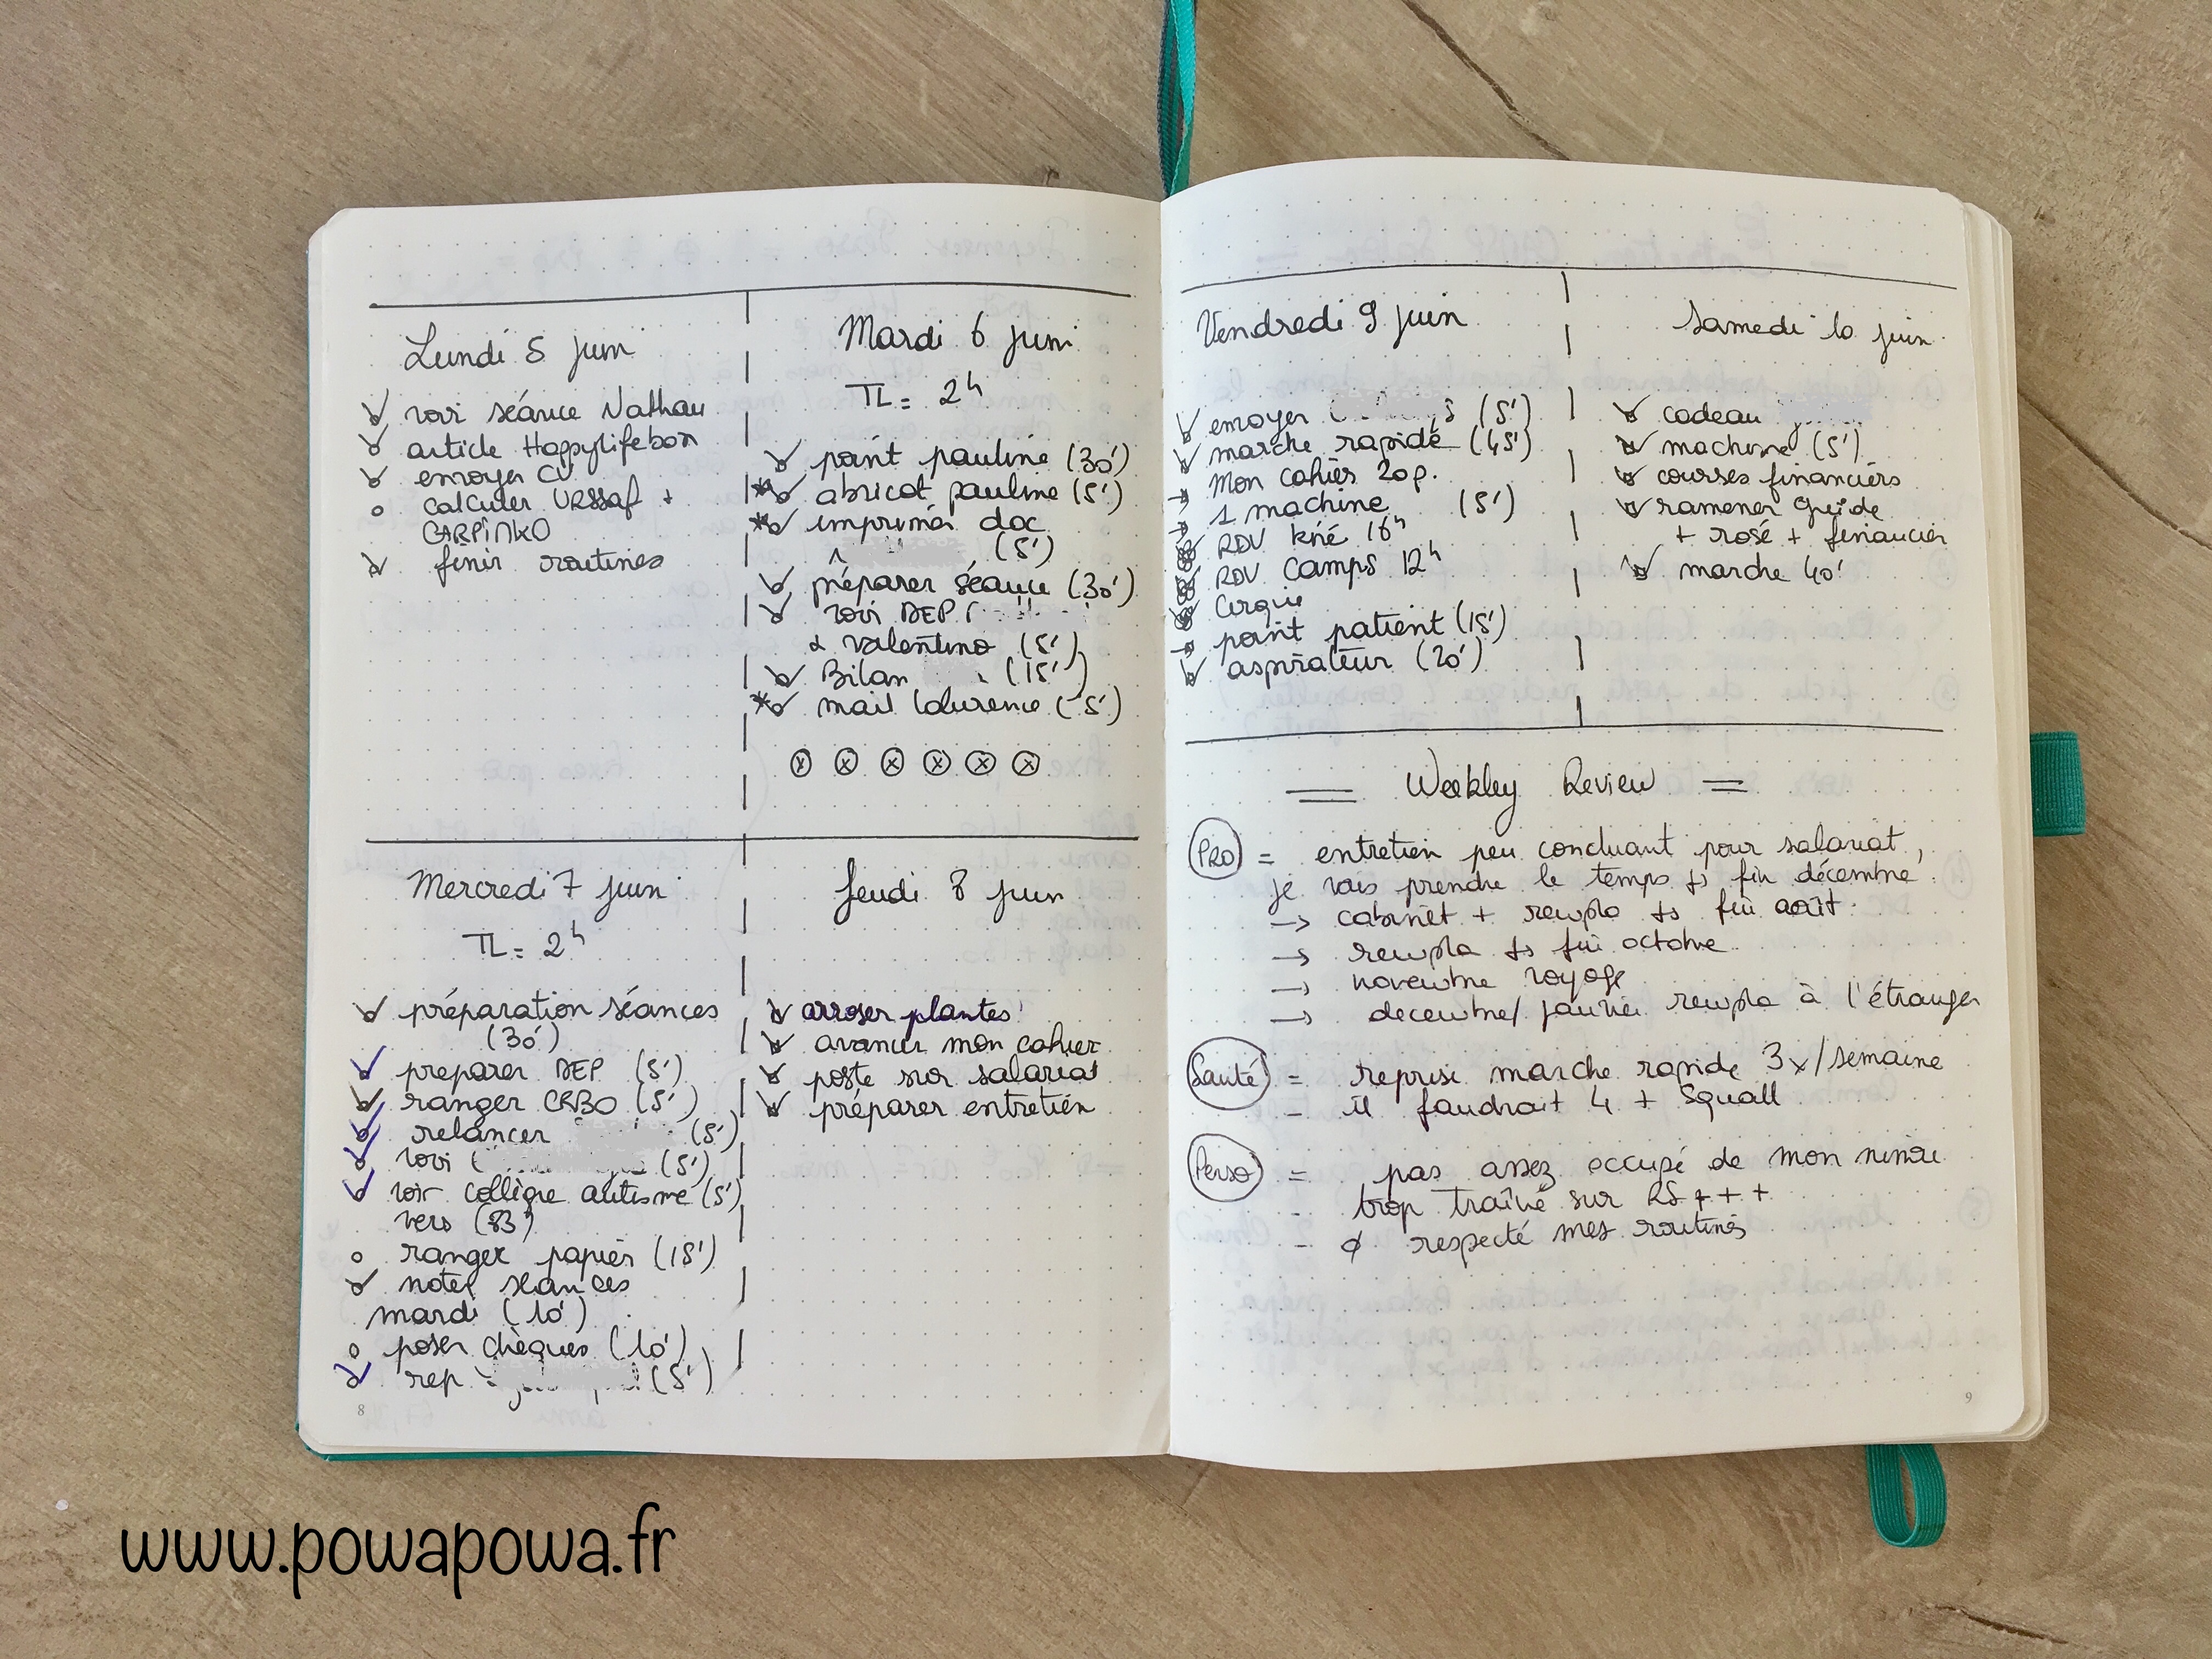 Lundi 5 juin
revoir séance Nathan
article Happylifebox
envoyer CV
calculer URSSAF +
CARPIMKO
finir routines
Mardi 6 juin
TL = 2h
point pauline (30')
abricot pauline (5')
imprimer doc
(5')
préparer séance (30')
DEP
& valentino (5')
Bilan (15')
mail laurence (5')
Mercredi 7 juin
TL = 2h
préparation séances
(30')
preparer DEP (5')
ranger CRBO (5')
relancer (5')
(5')
voir collègue autisme (5')
vers (83)
ranger papiers (15')
noter séances
mardi (10')
poser chèques (10')
rep (5')
8
Jeudi 8 juin
arroser plantes
avancer mon cahier
poste sur salariat
préparer entretien
Vendredi 9 juin
envoyer (5')
marche rapide (45')
Mon cahier 20p.
1 machine (5')
RDV kiné 16h
RDV Camps 12h
Cirque
point patient (15')
aspirateur (20')
Samedi 10 juin
cadeau
machine (5')
courses financiers
ramener guide
+ rosé + financier
marche 40'
= Weekley Review =
PRO = entretien peu concluant pour salariat,
je vais prendre le temps fin décembre.
→ cabinet + rempla fin août
→ rempla fin octobre
→ novembre voyage
→ decembre/janvier rempla à l'étranger
Santé = reprise marche rapide 3x/semaine
- il faudrait 4 + Squall
Perso = pas assez occupé de mon minou
- trop traîné sur RS + + +
- ø respecté mes routines
9
www.powapowa.fr